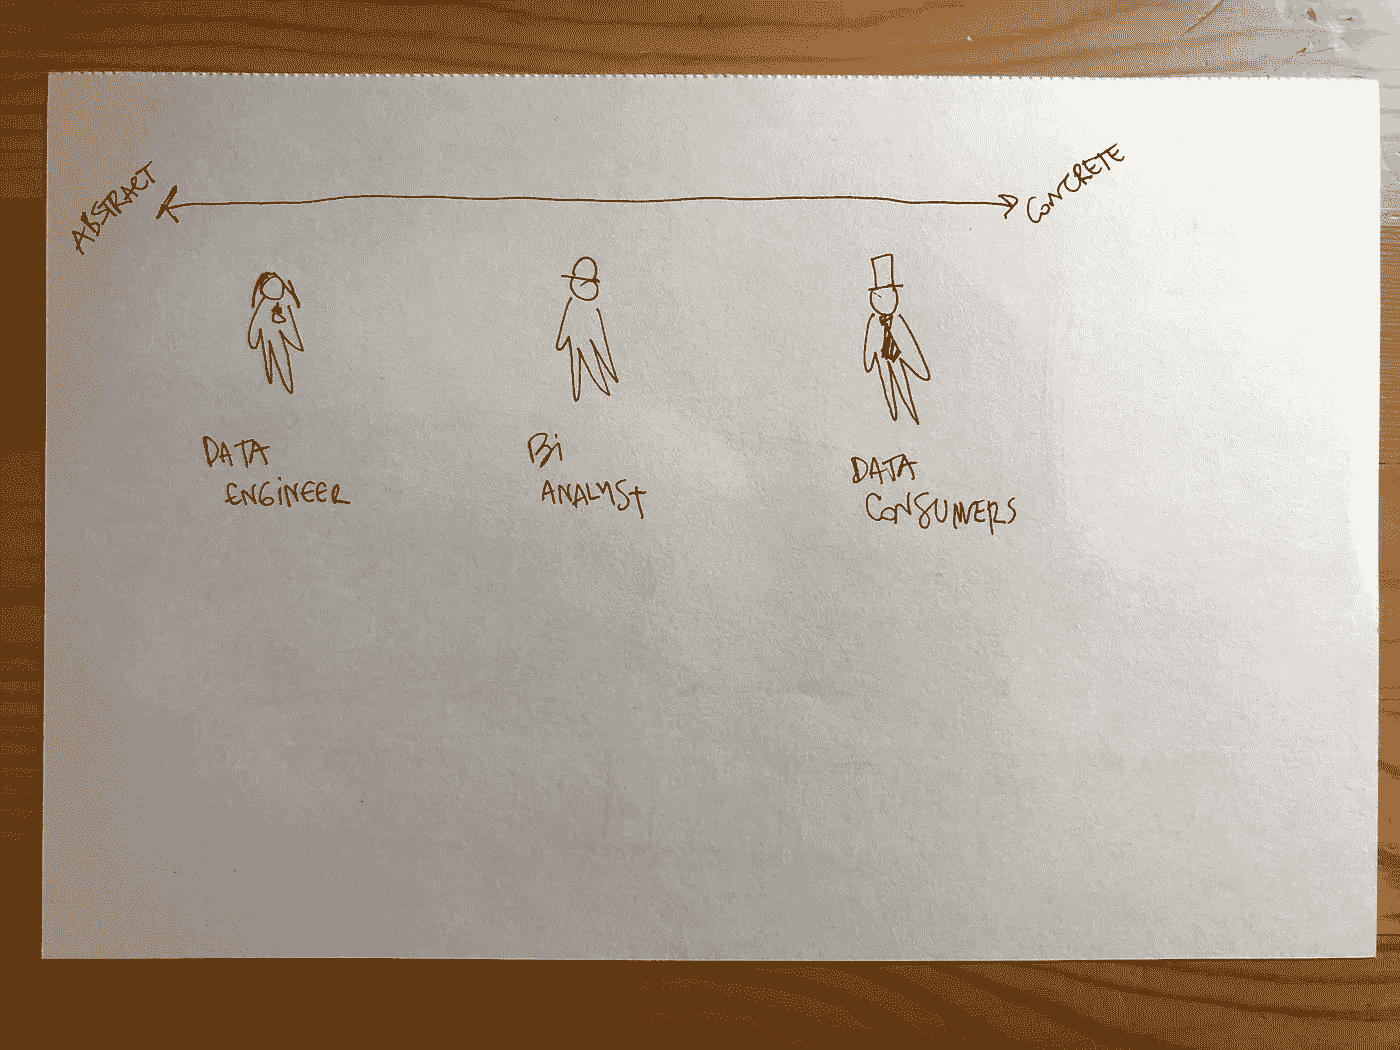 ABSTRACT
CONCRETE
DATA
ENGINEER
Bi
ANALYST
DATA
CONSUMERS